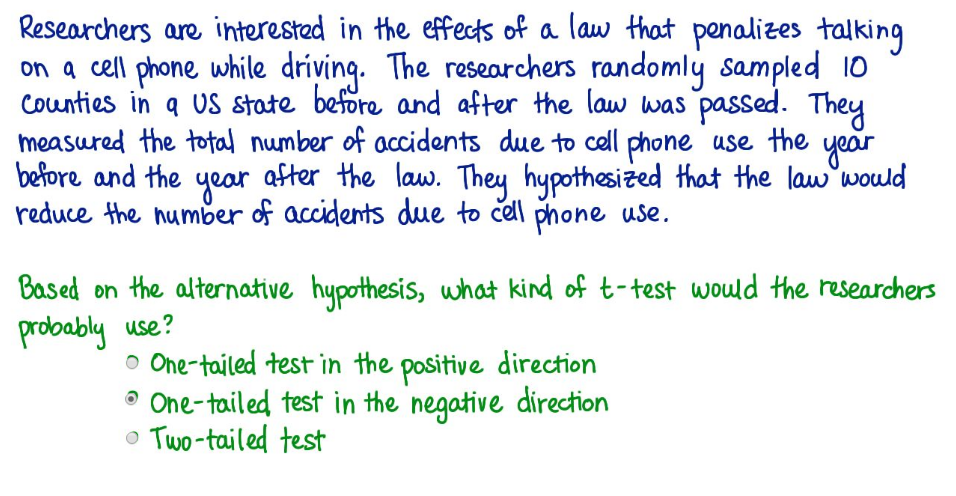 Researchers are interested in the effects of a law that penalizes talking
on a cell phone while driving. The researchers randomly sampled 10
Counties in a US state before and after the law was passed. They
measured the total number of accidents due to cell phone use the year
before and the year after the law. They hypothesized that the law would
reduce the number of accidents due to cell phone use.
Based on the alternative hypothesis, what kind of t-test would the researchers
probably use?
One-tailed test in the positive direction
One-tailed test in the negative direction
Two-tailed test